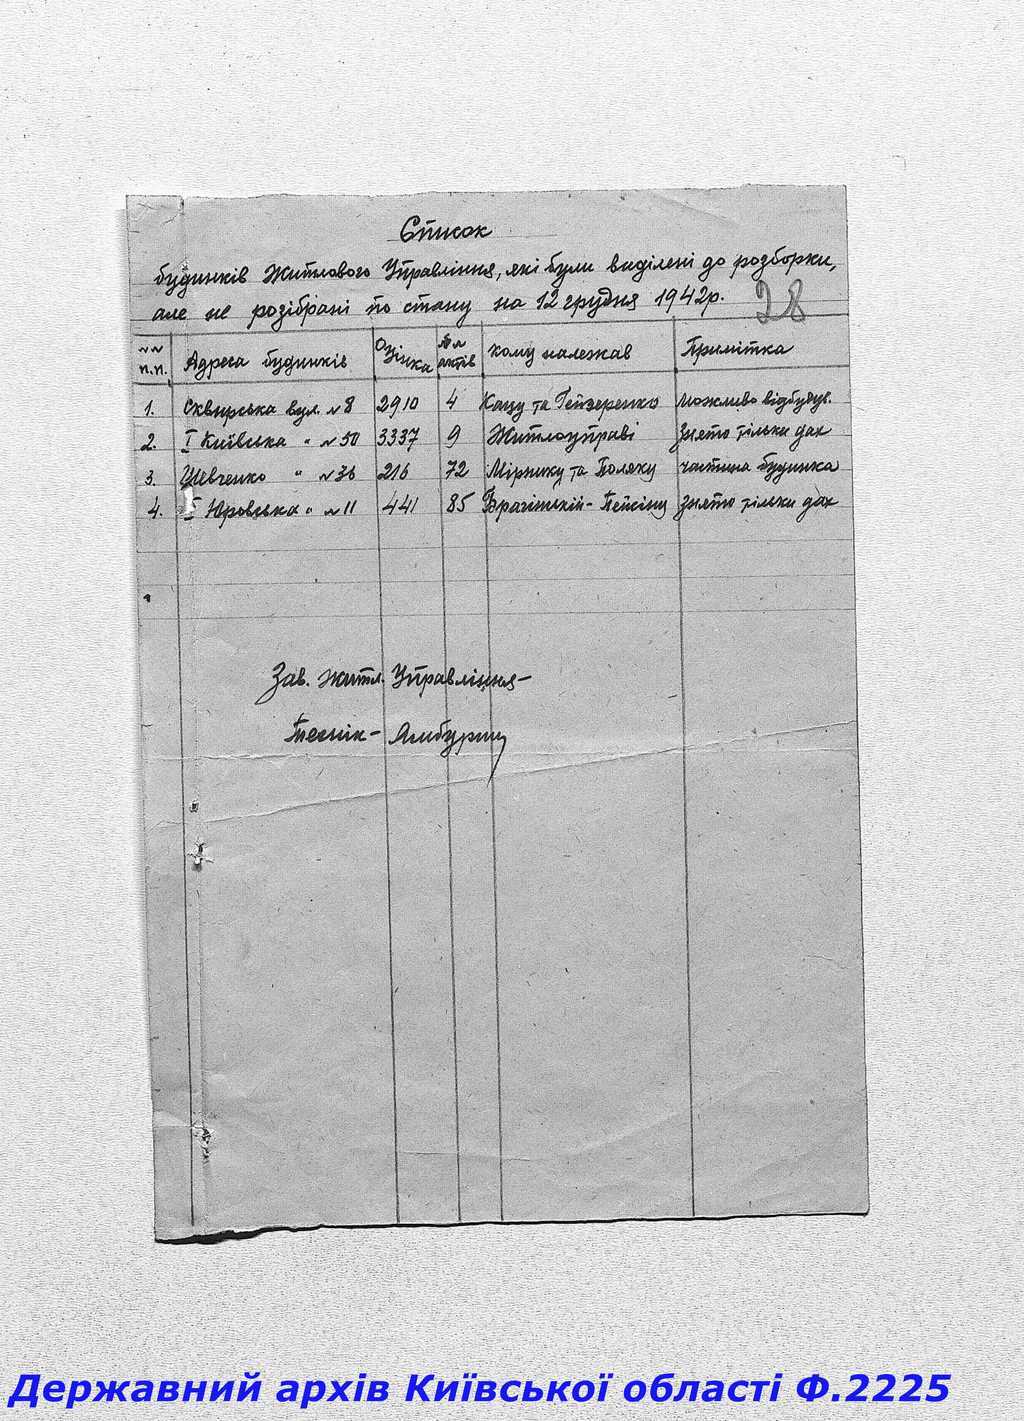 Список
будинків Житлового Управління, які були виділені до розборки,
але не розібрані по стану на 12 грудня 1942р.
28
№№ п.п. Адреса будинків Оцінка №№ актів кому належав Примітка
1. Сквирська вул. №8 2910 4 Кацу та Гейзеренко можливо відбудув.
2. I Київська " №50 3337 9 Житлоуправі Знято тільки дах
3. Шевченко " №36 216 72 Мірнику та Поляку частина будинка
4. I Юровська " №11 441 85 Брагінській-Пейсіну знято тільки дах
Зав. житл. Управління-
Технік-
Державний архів Київської області Ф.2225